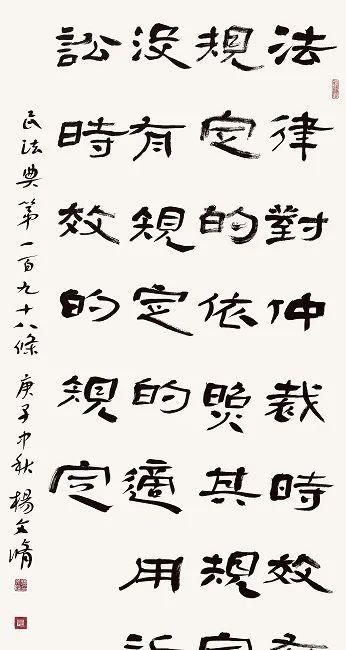 法律對仲裁時效有
規定的依照其規定
没有規定的適用訴
訟時效的規定
民法典第一百九十八條 庚子中秋 楊文